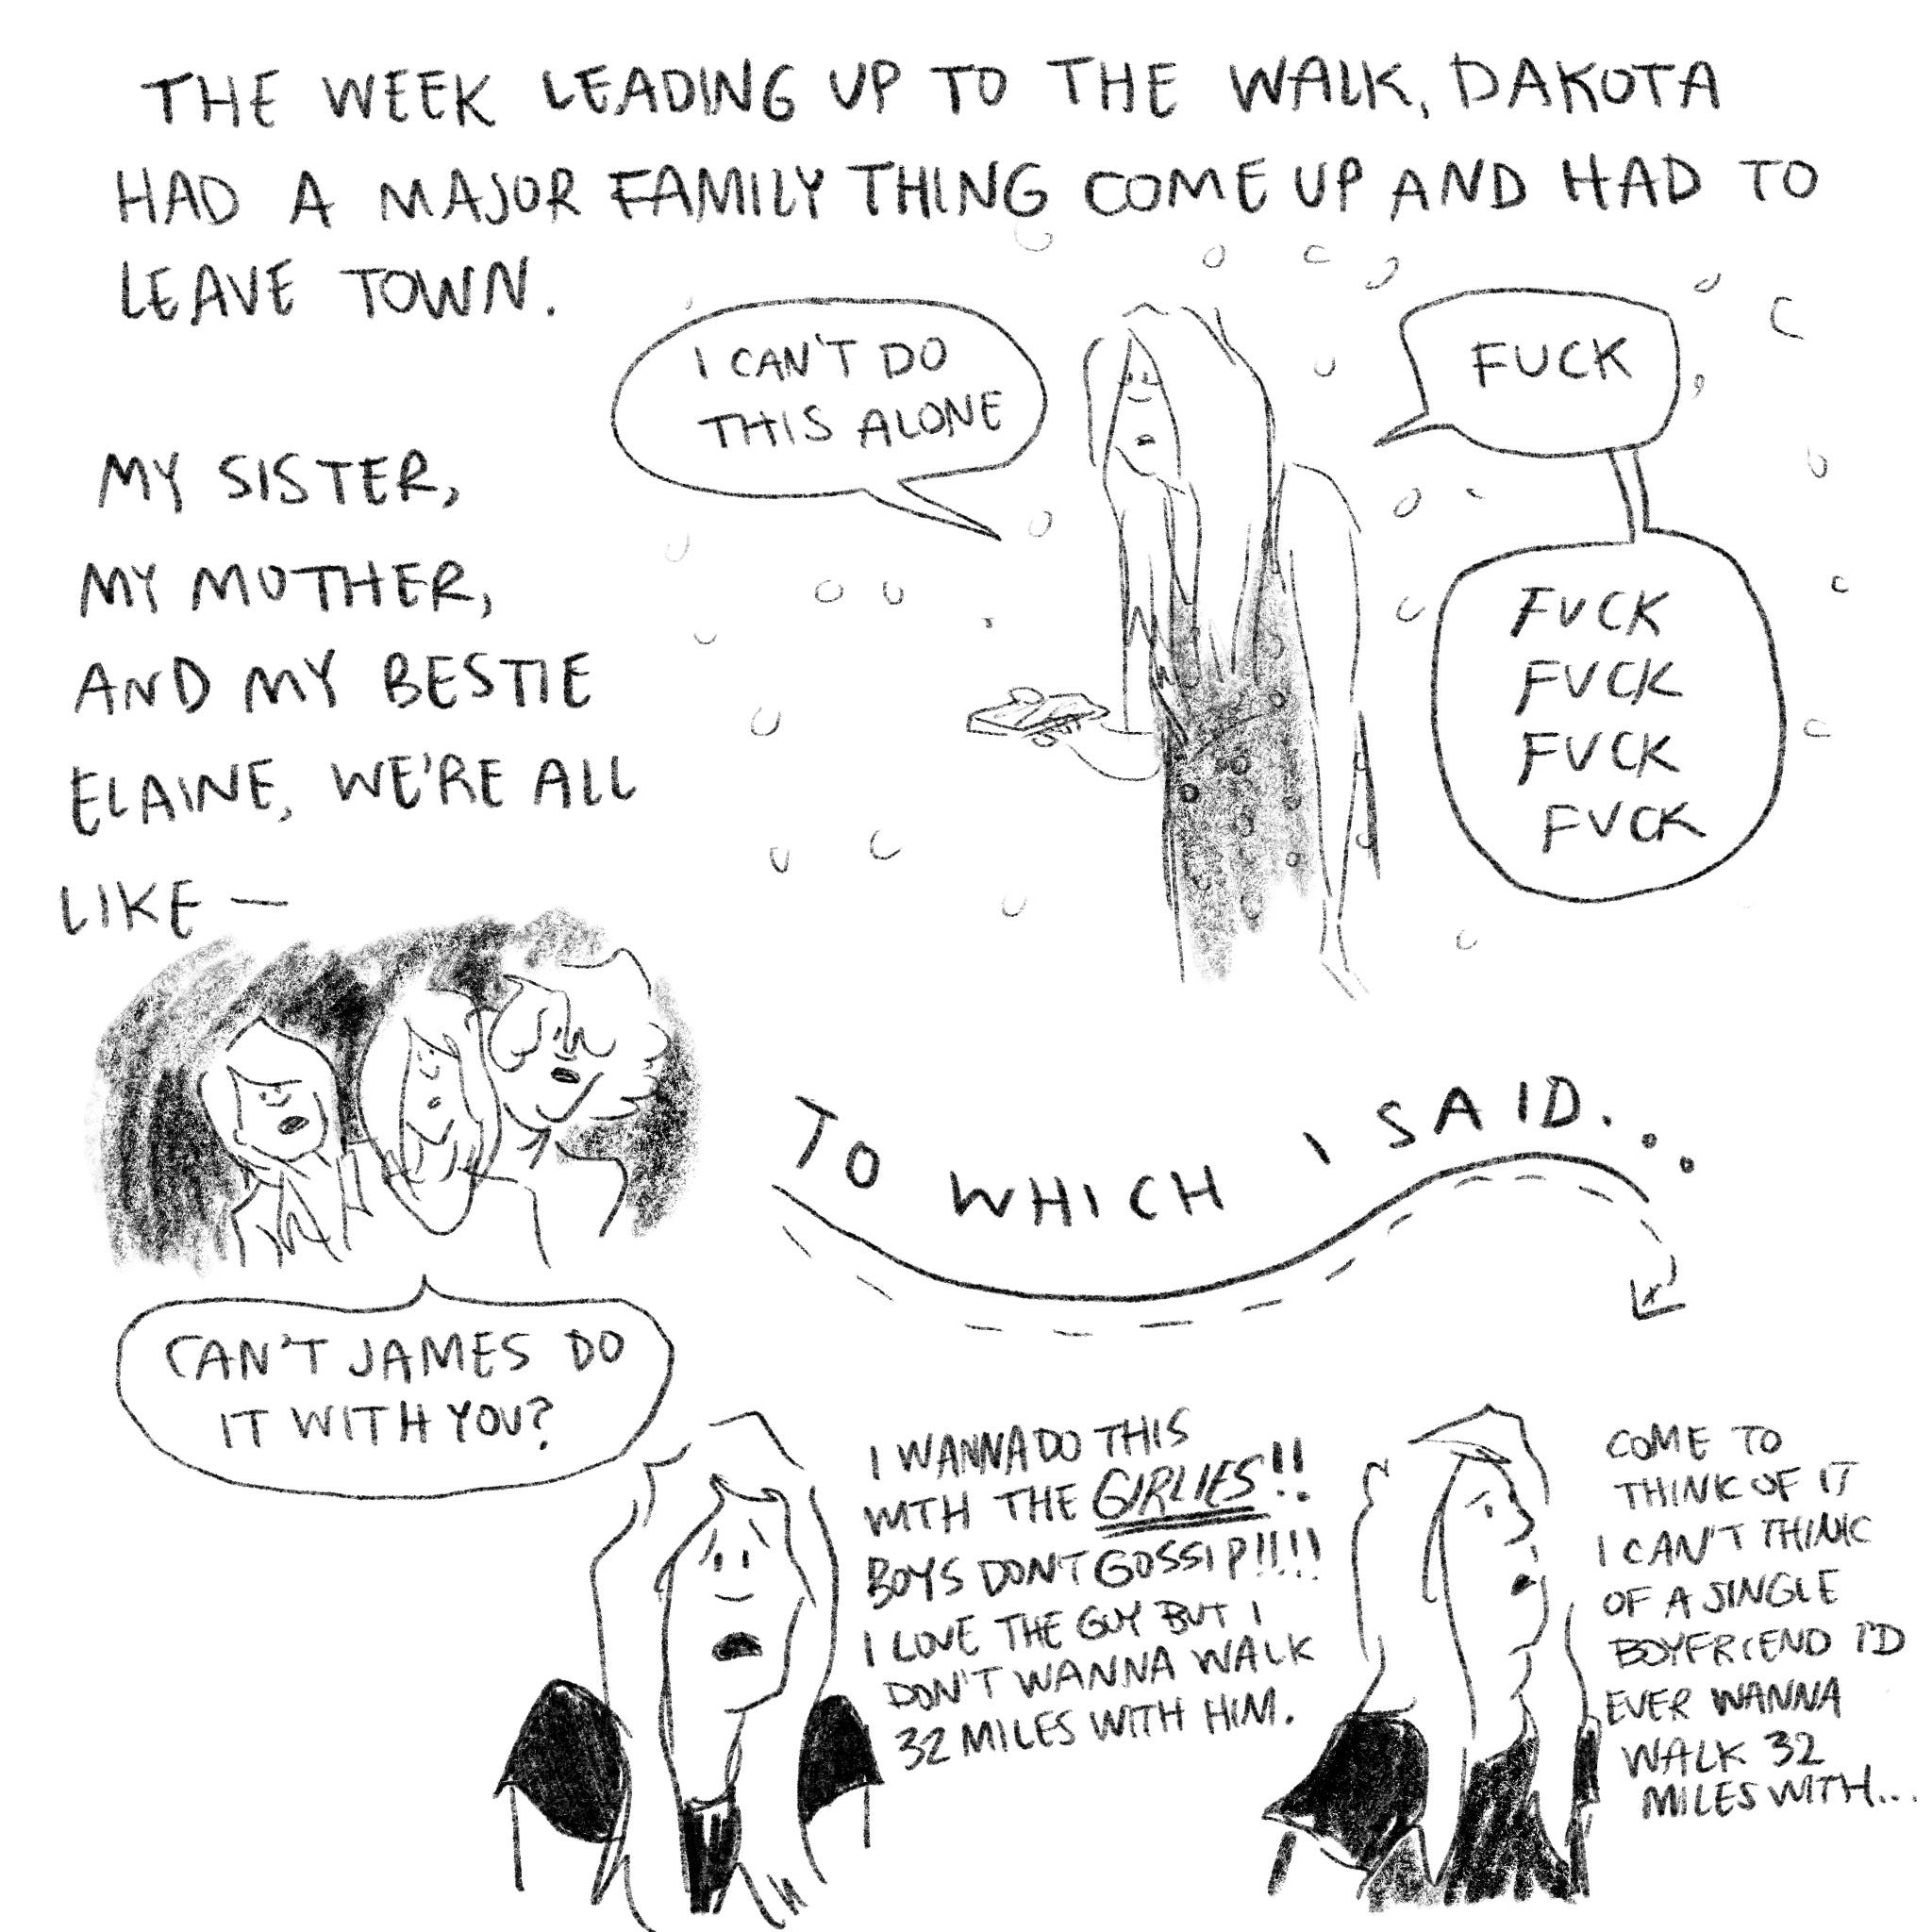 THE WEEK LEADING UP TO THE WALK, DAKOTA
HAD A MAJOR FAMILY THING COME UP AND HAD TO
LEAVE TOWN.
I CAN'T DO
THIS ALONE
FUCK
FUCK
FUCK
FUCK
FUCK
MY SISTER,
MY MOTHER,
AND MY BESTIE
ELAINE, WE'RE ALL
LIKE —
CAN'T JAMES DO
IT WITH YOU?
TO WHICH I SAID...
I WANNA DO THIS
WITH THE GIRLIES!!
BOYS DONT GOSSIP!!!!
I LOVE THE GUY BUT I
DON'T WANNA WALK
32 MILES WITH HIM.
COME TO
THINK OF IT
I CAN'T THINK
OF A SINGLE
BOYFRIEND I'D
EVER WANNA
WALK 32
MILES WITH...